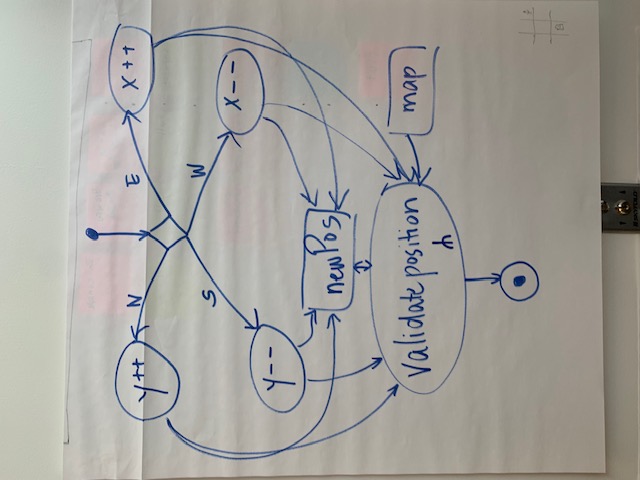 N
E
y++
x++
S
W
x--
y--
newPos
Validate position
map